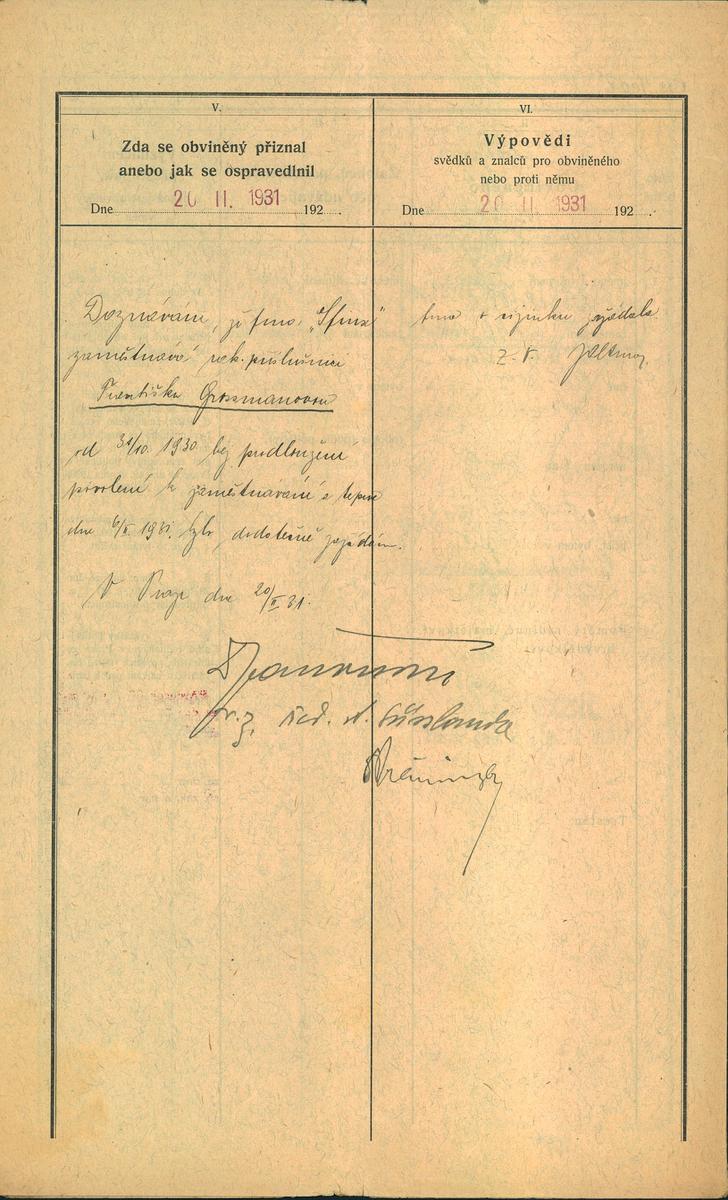 V.
Zda se obviněný přiznal
anebo jak se ospravedlnil
Dne 20 II. 1931 192
Doznávám, že fma „Sfinx"
zaměstnává rak. příslušnici
Františku Grossmanovou
od 31/10. 1930 bez prodloužení
povolení k zaměstnávání a teprve
dne 6/II. 1931 bylo dodatečně zažádáno.
V Praze dne 20/II 31.
VI.
Výpovědi
svědků a znalců pro obviněného
nebo proti němu
Dne 20 II 1931 192
fma o výjimku zažádala